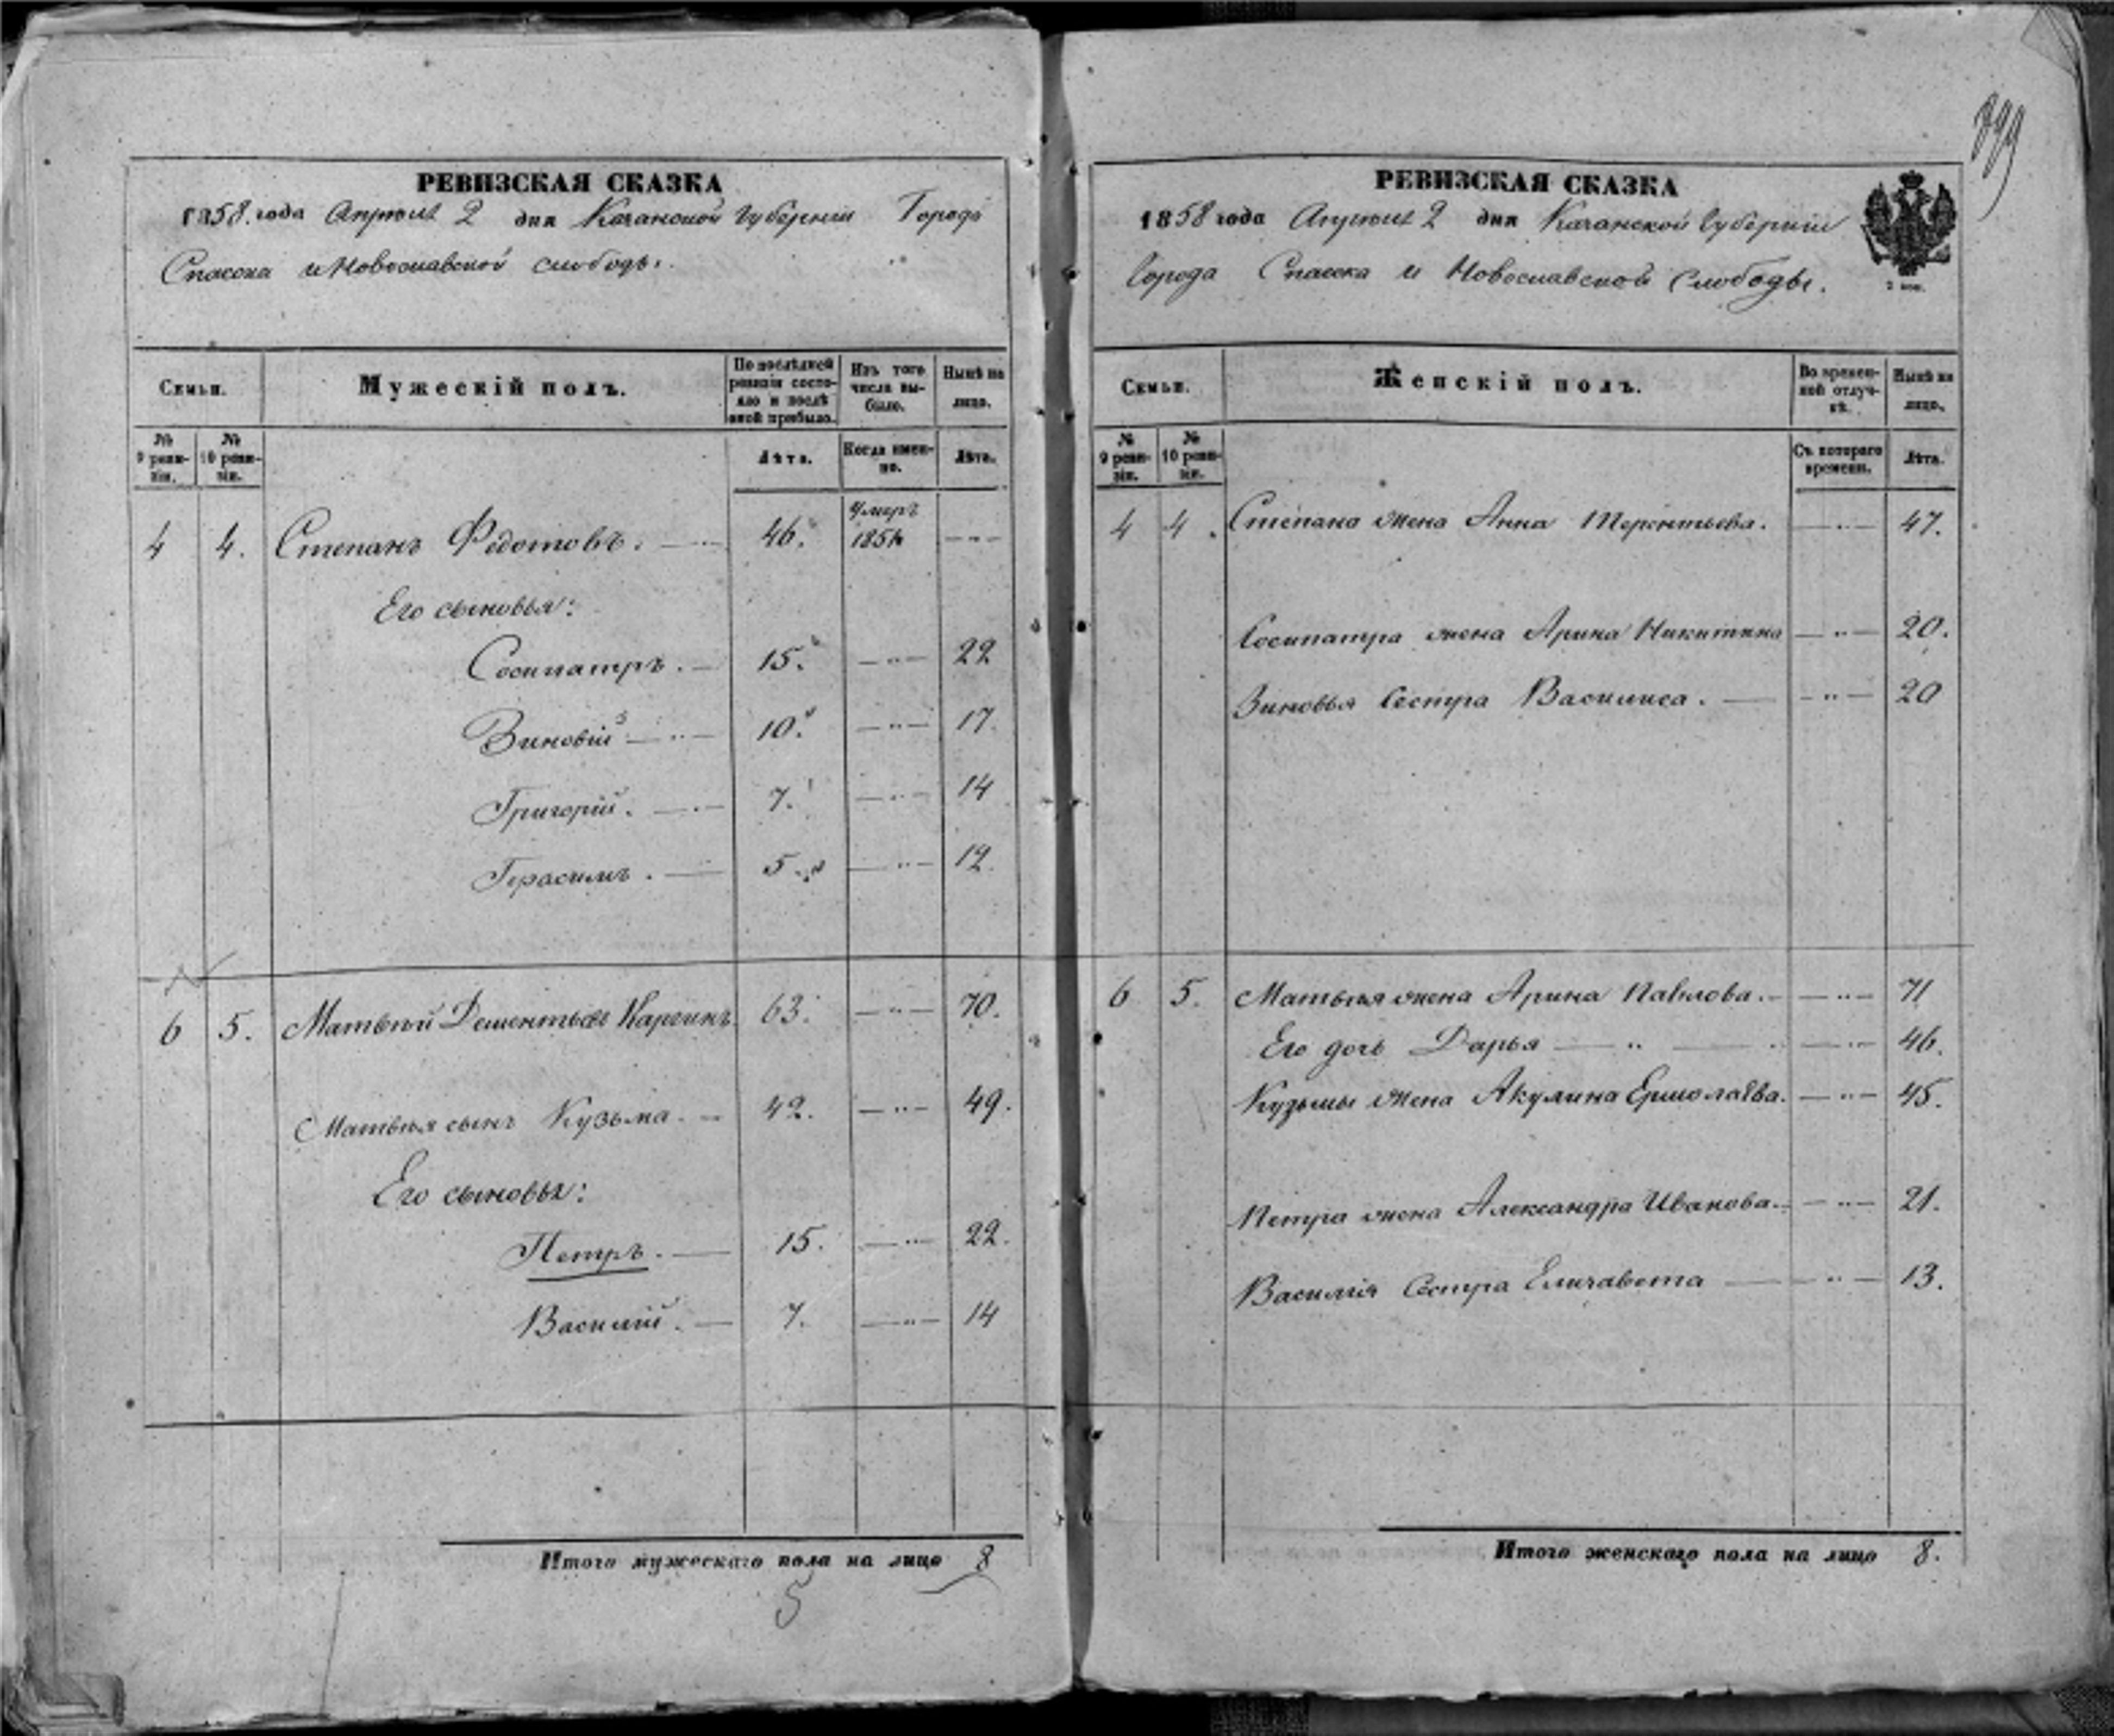 РЕВИЗСКАЯ СКАЗКА
1858. года Апреля 2 дня Казанской Губернии Города
Спасска и Новославской слободы.
Семьи.
Мужескій полъ.
По послѣдней ревизіи состояло и послѣ оной прибыло.
Изъ того числа выбыло.
Нынѣ на лицо.
№ 9 ревизіи.
№ 10 ревизіи.
Лѣта.
Когда именно.
Лѣта.
4 4. Степанъ Федотовъ. 46. умеръ 1854
Его сыновья:
Сосипатръ. 15. 22
Зиновій 10. 17.
Григорій. 7. 14
Герасимъ. 5. 12.
6 5. Матвѣй Дементьевъ Каргинъ 63. 70.
Матвѣя сынъ Кузьма. 42. 49.
Его сыновья:
Петръ. 15. 22.
Василій. 7. 14
Итого мужескаго пола на лицо 8
5
РЕВИЗСКАЯ СКАЗКА
1858 года Апреля 2 дня Казанской Губерніи
Города Спасска и Новославской Слободы.
2 коп.
Семьи.
Женскій полъ.
Во временной отлучкѣ.
Нынѣ на лицо.
№ 9 ревизіи.
№ 10 ревизіи.
Съ котораго времени.
Лѣта.
4 4. Степана жена Анна Терентьева. 47.
Сосипатра жена Арина Никитина 20.
Зиновья Сестра Василиса. 20
6 5. Матвѣя жена Арина Павлова. 71
Его дочь Дарья 46.
Кузьмы жена Акулина Ермолаева. 45.
Петра жена Александра Иванова. 21.
Василія Сестра Елизавета 13.
Итого женскаго пола на лицо 8.